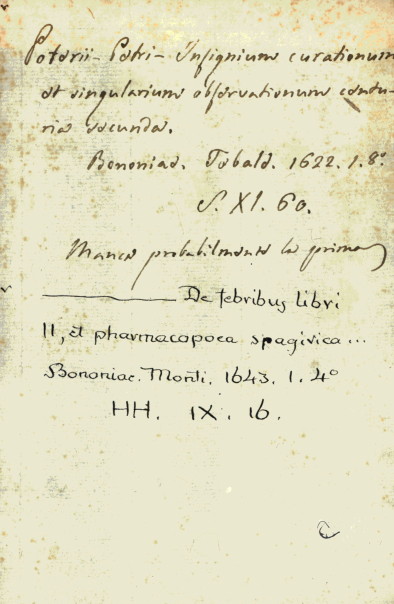 Poterii - Petri - Insignium curationum
et singularium observationum centu-
ria secunda.
Bononiae. Tebald. 1622. 1. 8º
S. XI. 60.
Manca probabilmente la prima
De febribus libri
II, et pharmacopoea spagirica...
Bononiae. Monti. 1643. 1. 4º
HH. IX. 16.